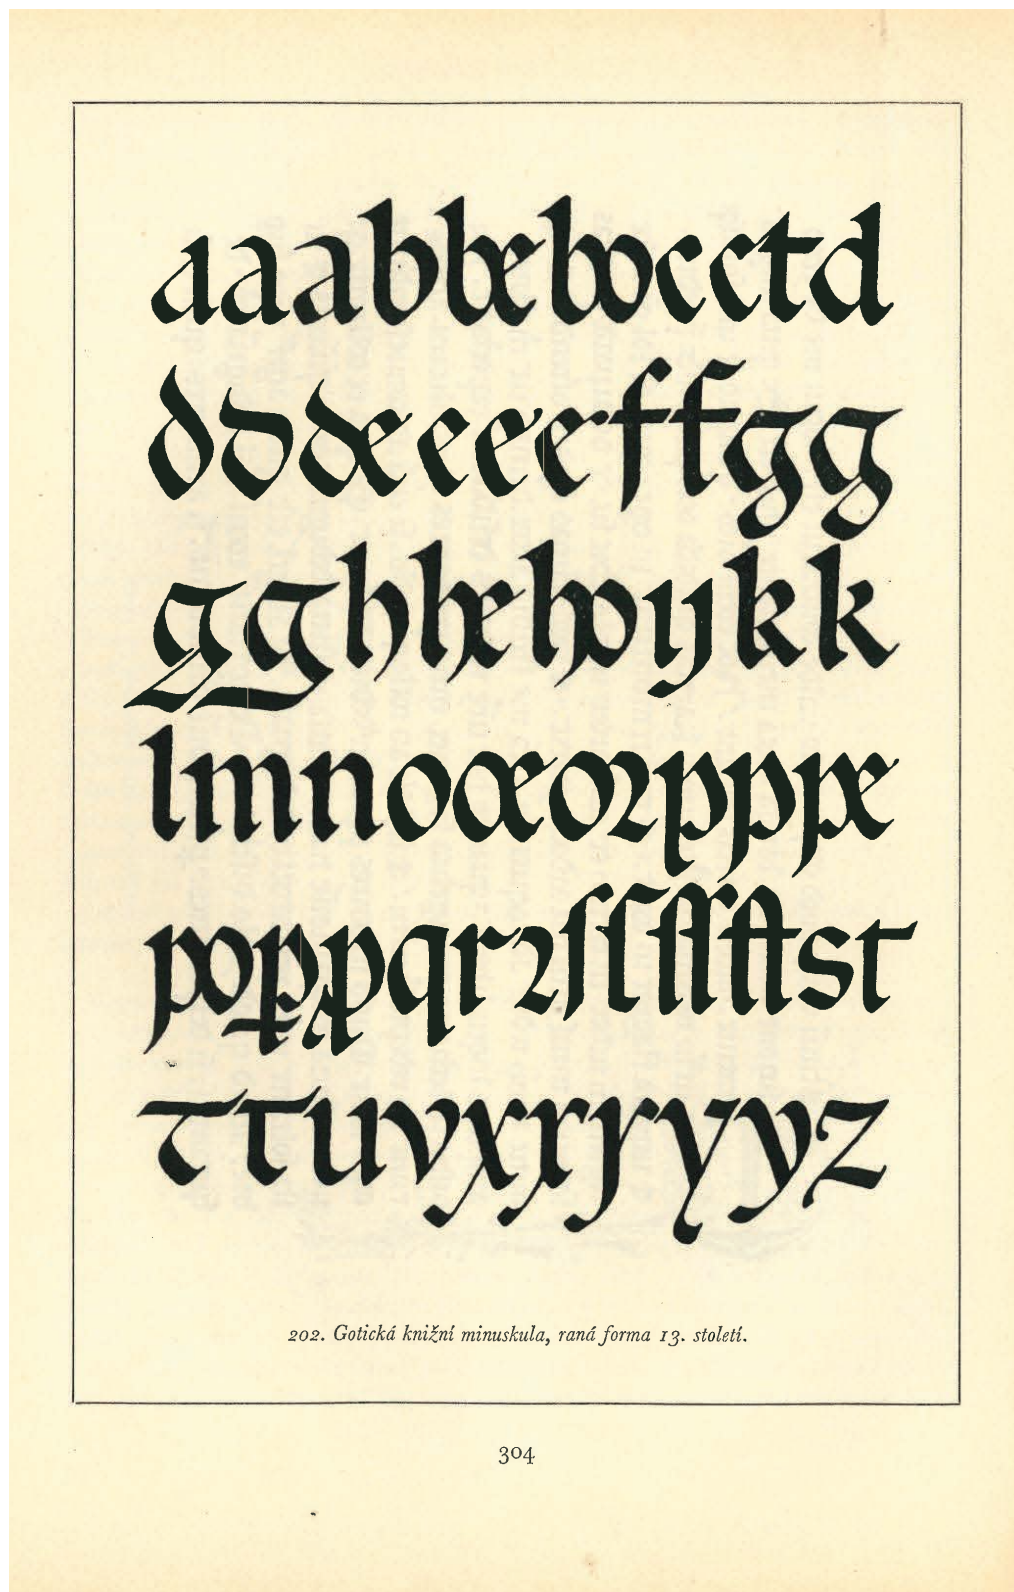 aaabbebocctd
dddeeeeeffgg
gghhehoijkk
lmnooeoꝛpppe
popꝑqrꝛſſſſſtst
ττuvxxryyz
202. Gotická knižní minuskula, raná forma 13. století.
304